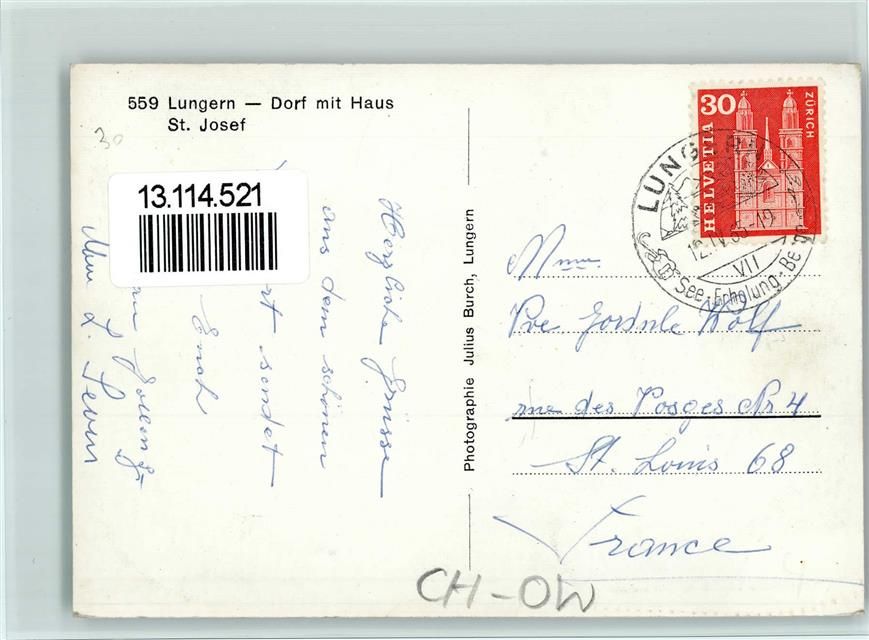 559 Lungern — Dorf mit Haus
St. Josef
30
13.114.521
Herzliche Grüsse
aus dem schönen
sendet
Euch
Photographie Julius Burch, Lungern
30
HELVETIA
ZÜRICH
LUNGERN
12.IV.65-19
VII
See-Erholung-Be
Mme
Wolf
rue des Vosges Nr 4
St. Louis 68
France
CH-OW